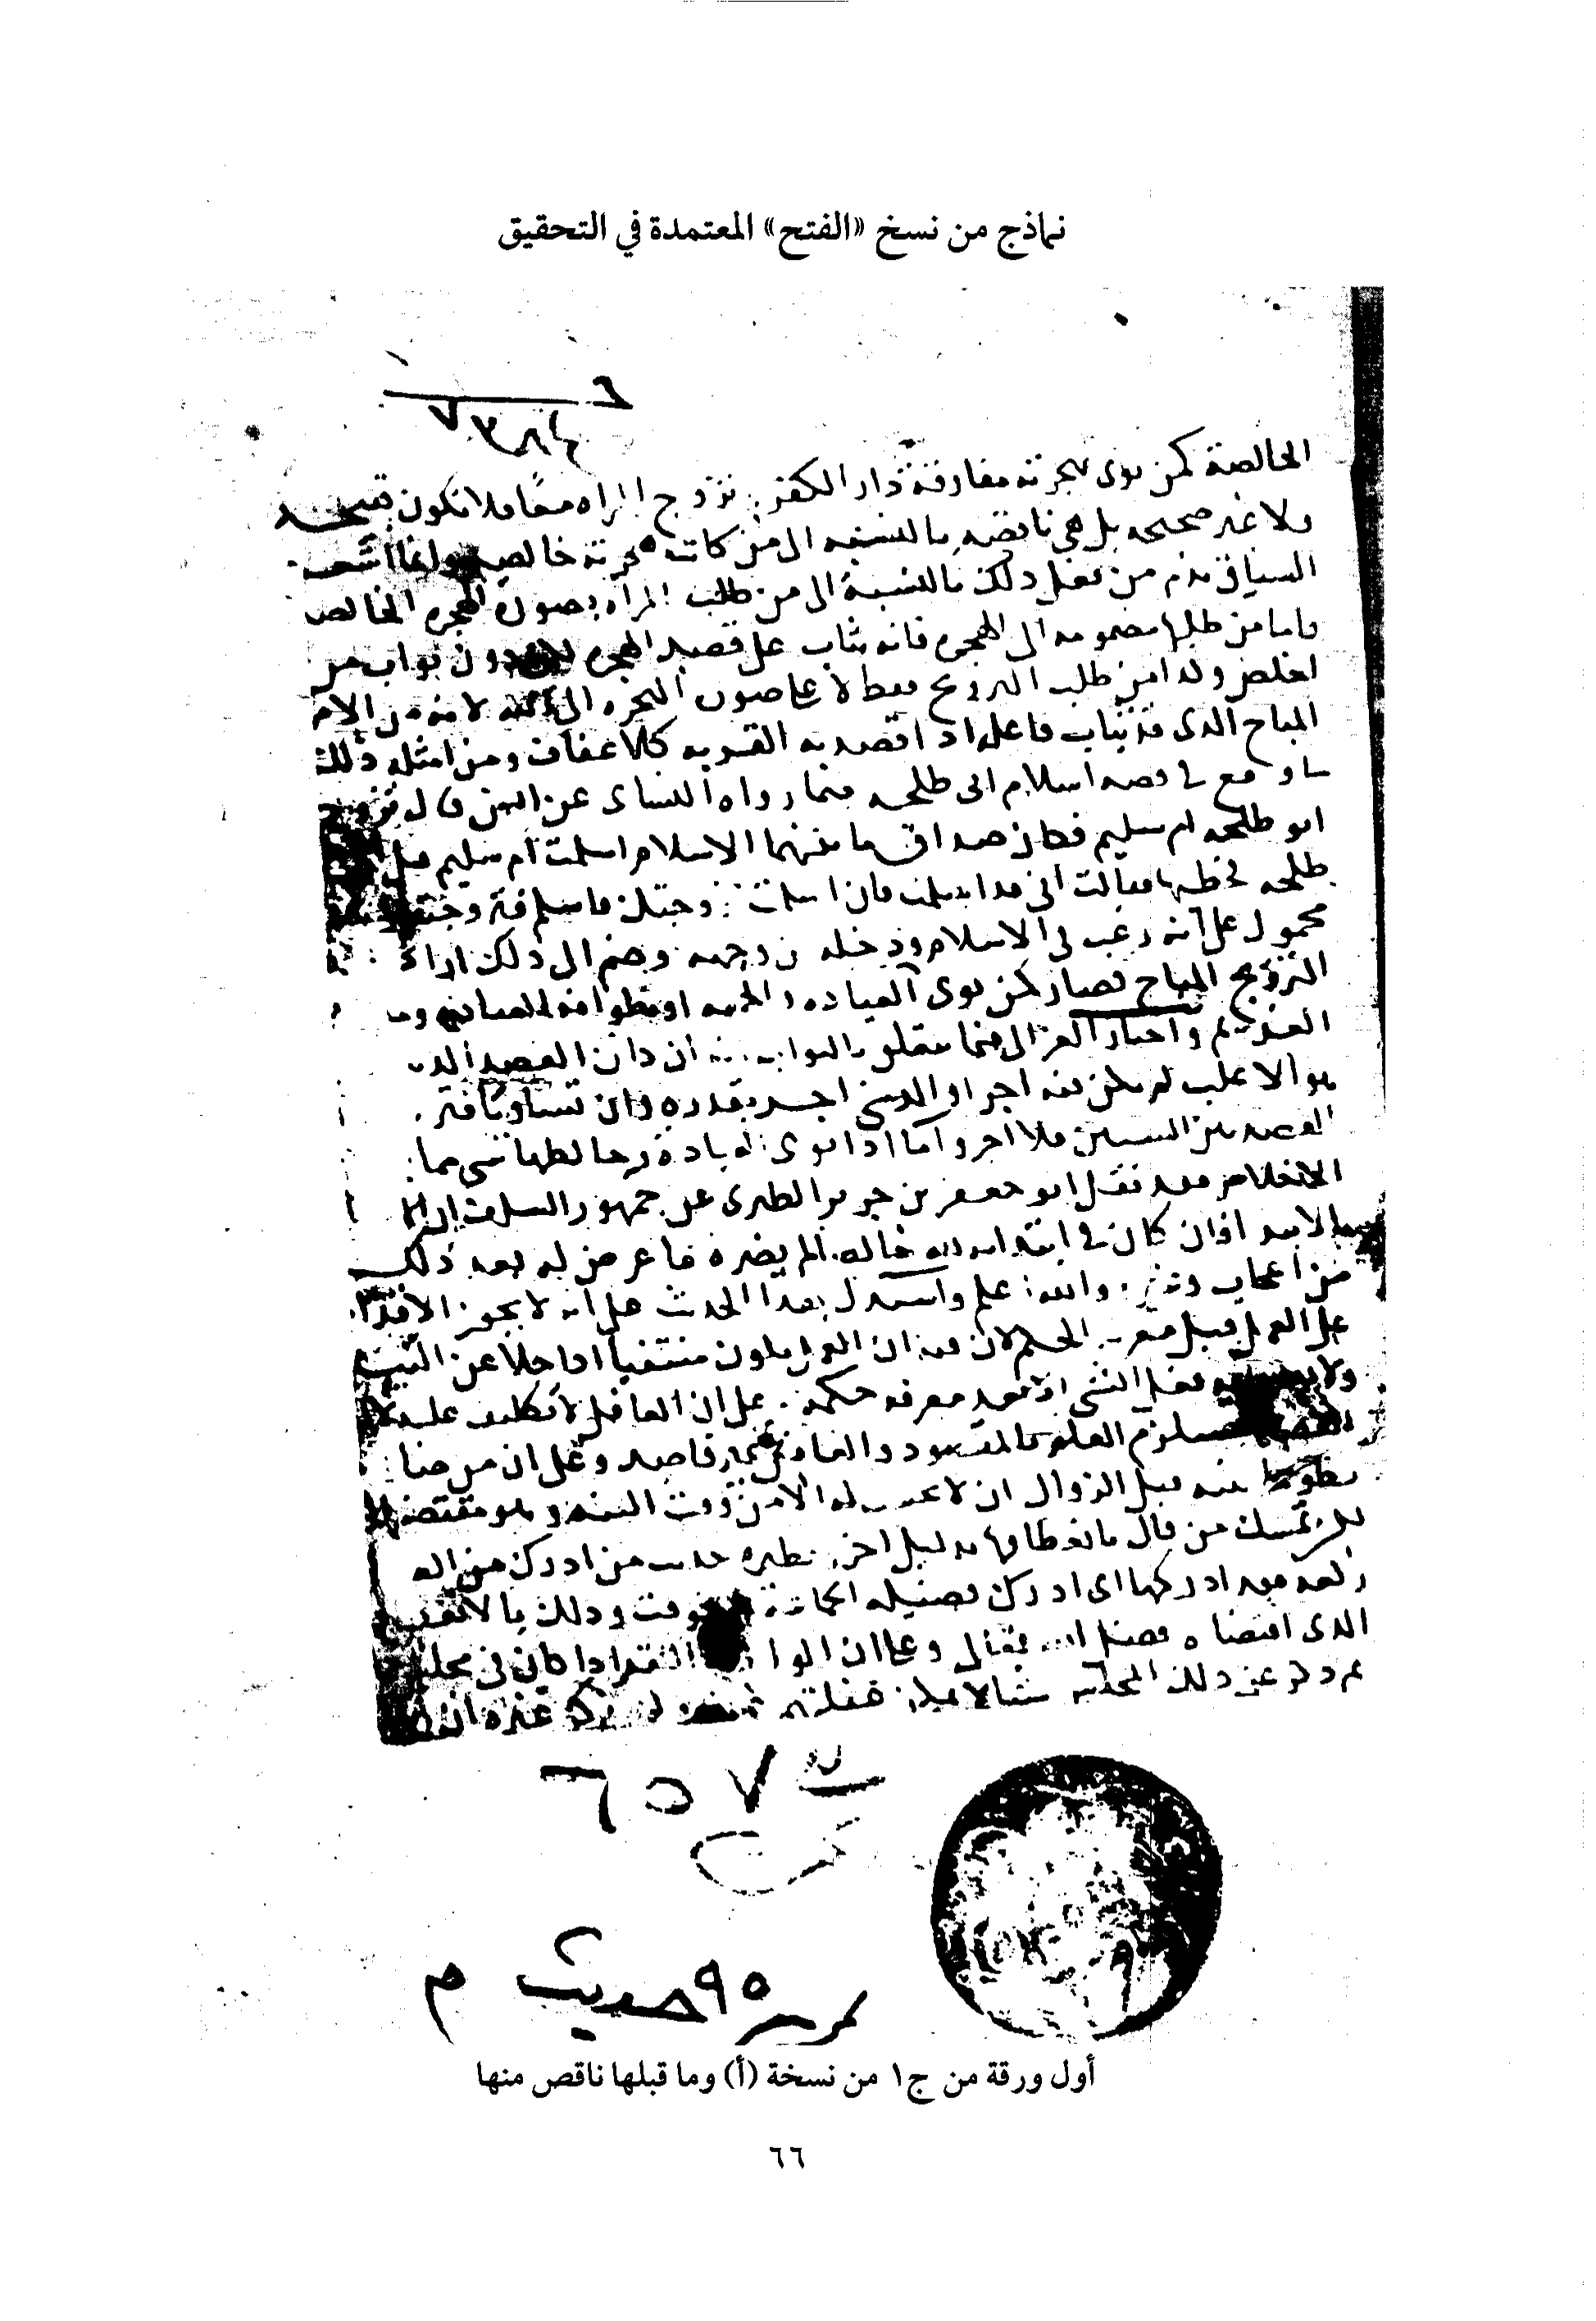 نماذج من نسخ «الفتح» المعتمدة في التحقيق
٦
٧٣٨٤
الخالصة كمن نوى بهجرته مفارقة دار الكفر وتزوج المراه معا فلا تكون قبيحه
ولا غير صحيحه بل هي ناقصه بالنسبه الى من كانت هجرته خالصه وانما اشعر
السياق بذم من فعل ذلك بالنسبة الى من طلب المراه بصوره الهجره الخالصه
واما من طلبها مضمومه الى الهجره فانه يثاب على قصد الهجره لكن دون ثواب من
اخلص وكذا من طلب التزويج فقط لا على صوره الهجره الى الله لانه من الامر
المباح الذى قد يثاب فاعله اذا قصد به القربه كالاعفاف ومن امثله ذلك
ما وقع في قصه اسلام ابى طلحه فيما رواه النساى عن انس قال تزوج
ابو طلحه ام سليم فكان صداق ما بينهما الاسلام اسلمت ام سليم قبل
طلحه فخطبها فقالت انى قد اسلمت فان اسلمت تزوجتك فاسلم فتزوجته
محمول على انه رغب في الاسلام ودخله من وجهه وضم الى ذلك اراده
التزويج المباح فصار كمن نوى العباده والحميه او بطوافه العباده
الغريم واختار الغزالى فيما يتعلق بالثواب انه ان كان القصد الدنيوى
هو الاغلب لم يكن فيه اجر او الدينى اجر بقدره وان تساويا فتردد
القصد بين الشيئين فلا اجر واما اذا نوى العبادة وخالطها شى مما
الاخلاص فقد نقل ابو جعفر بن جرير الطبرى عن جمهور السلف ان
بالابتداء فان كان في ابتدائه لله خالصا لم يضره ما عرض له بعد ذلك
من اعجاب وغيره والله اعلم واستدل بهذا الحديث على انه لا يجوز الاقدام
على العمل قبل معرفه الحكم لان فيه ان العمل يكون منتفيا اذا خلا عن النيه
ولا يصح نيه فعل الشى الا بعد معرفه حكمه وعلى ان الغافل لا تكليف عليه لان
القصد يستلزم العلم بالمقصود والغافل غير قاصد وعلى ان من صام
تطوعا بنيه قبل الزوال ان لا يحسب له الا من وقت النيه وهو مقتضى
لكن تمسك من قال بانعطافها بدليل اخر ونظيره حديث من ادرك من الصلاه
ركعه فقد ادركها اى ادرك فضيله الجماعة او الوقت وذلك بالانعطاف
الذى اقتضاه فضل الله تعالى وعلى ان الواحد الثقه اذا كان في مجلس
ثم ذكر عن ذلك المجلس شيئا لا يمكن غفلتهم عنه ولم يذكره غيره ان
٦٥٧
نمره ٩٥ حديث م
أول ورقة من ج١ من نسخة (أ) وما قبلها ناقص منها
٦٦